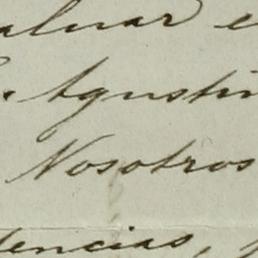 aluar e
. Agustin
Nosotros
dencias,